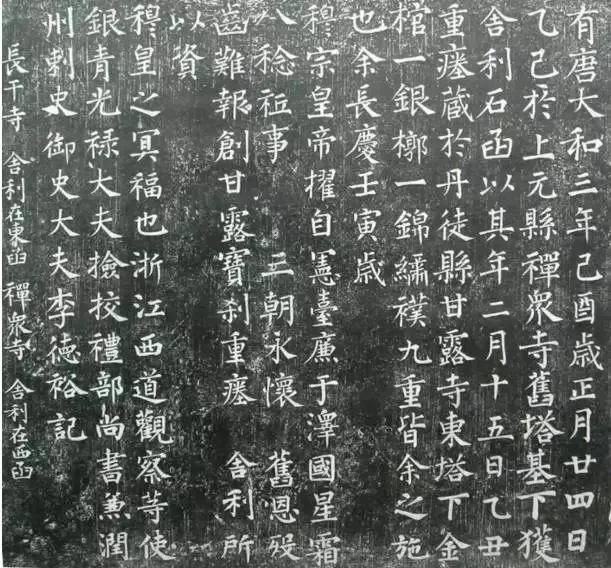 有唐大和三年己酉歲正月廿四日
乙巳於上元縣禪眾寺舊塔基下獲
舍利石函以其年二月十五日乙丑
重瘞藏於丹徒縣甘露寺東塔下金
棺一銀槨一錦繡襆九重皆余之施
也余長慶壬寅歲
穆宗皇帝擢自憲臺廉于澤國星霜
八稔祗事 三朝永懷 舊恩歿
齒難報創甘露寶刹重瘞 舍利所
以資
穆皇之冥福也浙江西道觀察等使
銀青光祿大夫撿挍禮部尚書兼潤
州刺史御史大夫李德裕記
長干寺 舍利在東函 禪眾寺 舍利在西函